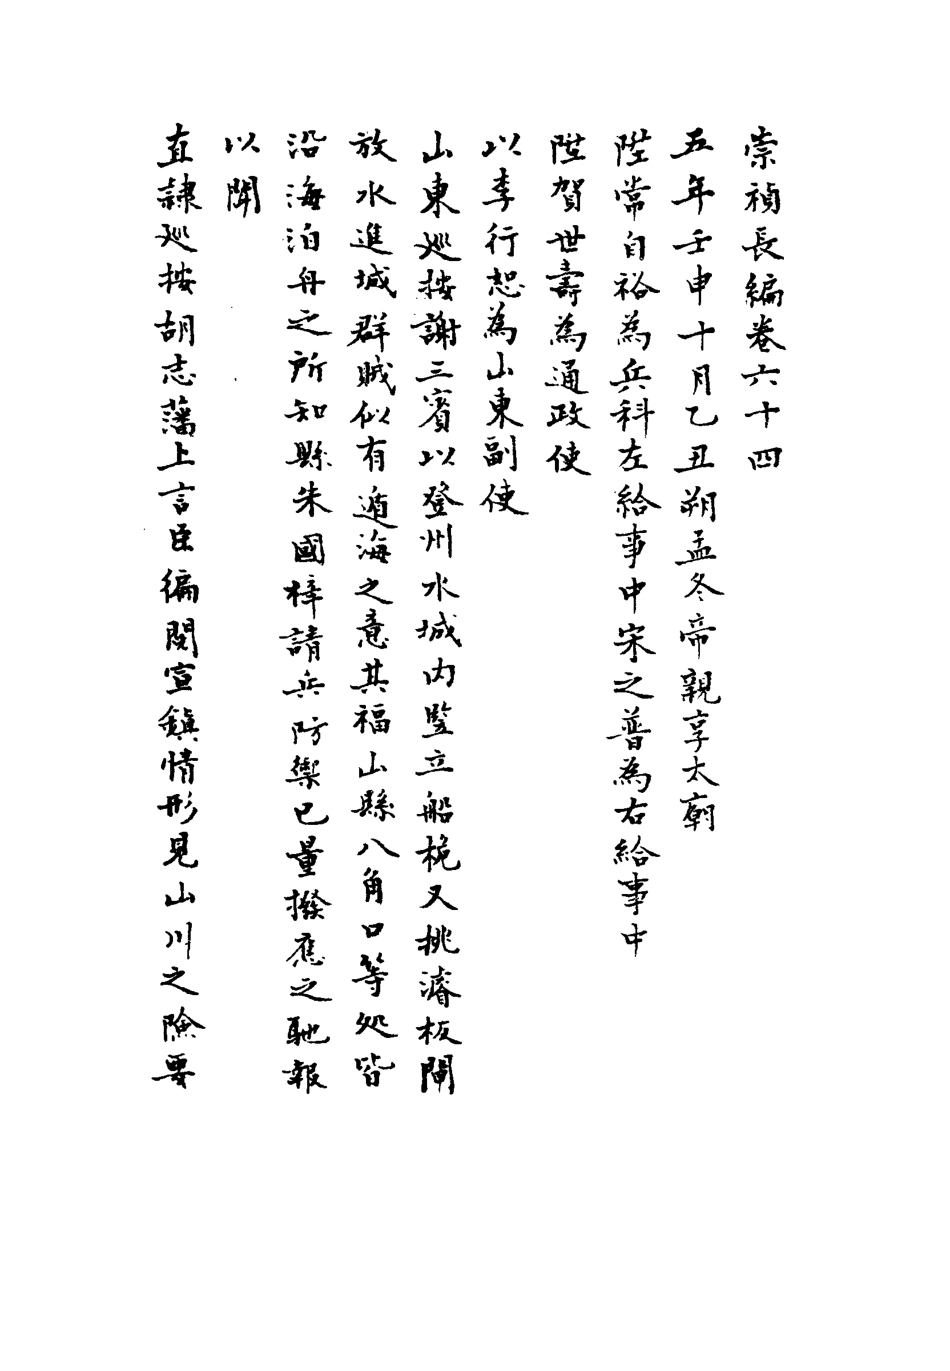 崇禎長編卷六十四
五年壬申十月乙丑朔孟冬帝親享太廟
陞常自裕為兵科左給事中宋之普為右給事中
陞賀世壽為通政使
以李行恕為山東副使
山東巡按謝三賓以登州水城內豎立船桅又挑濬板閘
放水進城群賊似有遁海之意其福山縣八角口等処皆
沿海泊舟之所知縣朱國梓請兵防禦已量撥應之馳報
以聞
直隷巡按胡志藩上言臣徧閱宣鎮情形見山川之險要